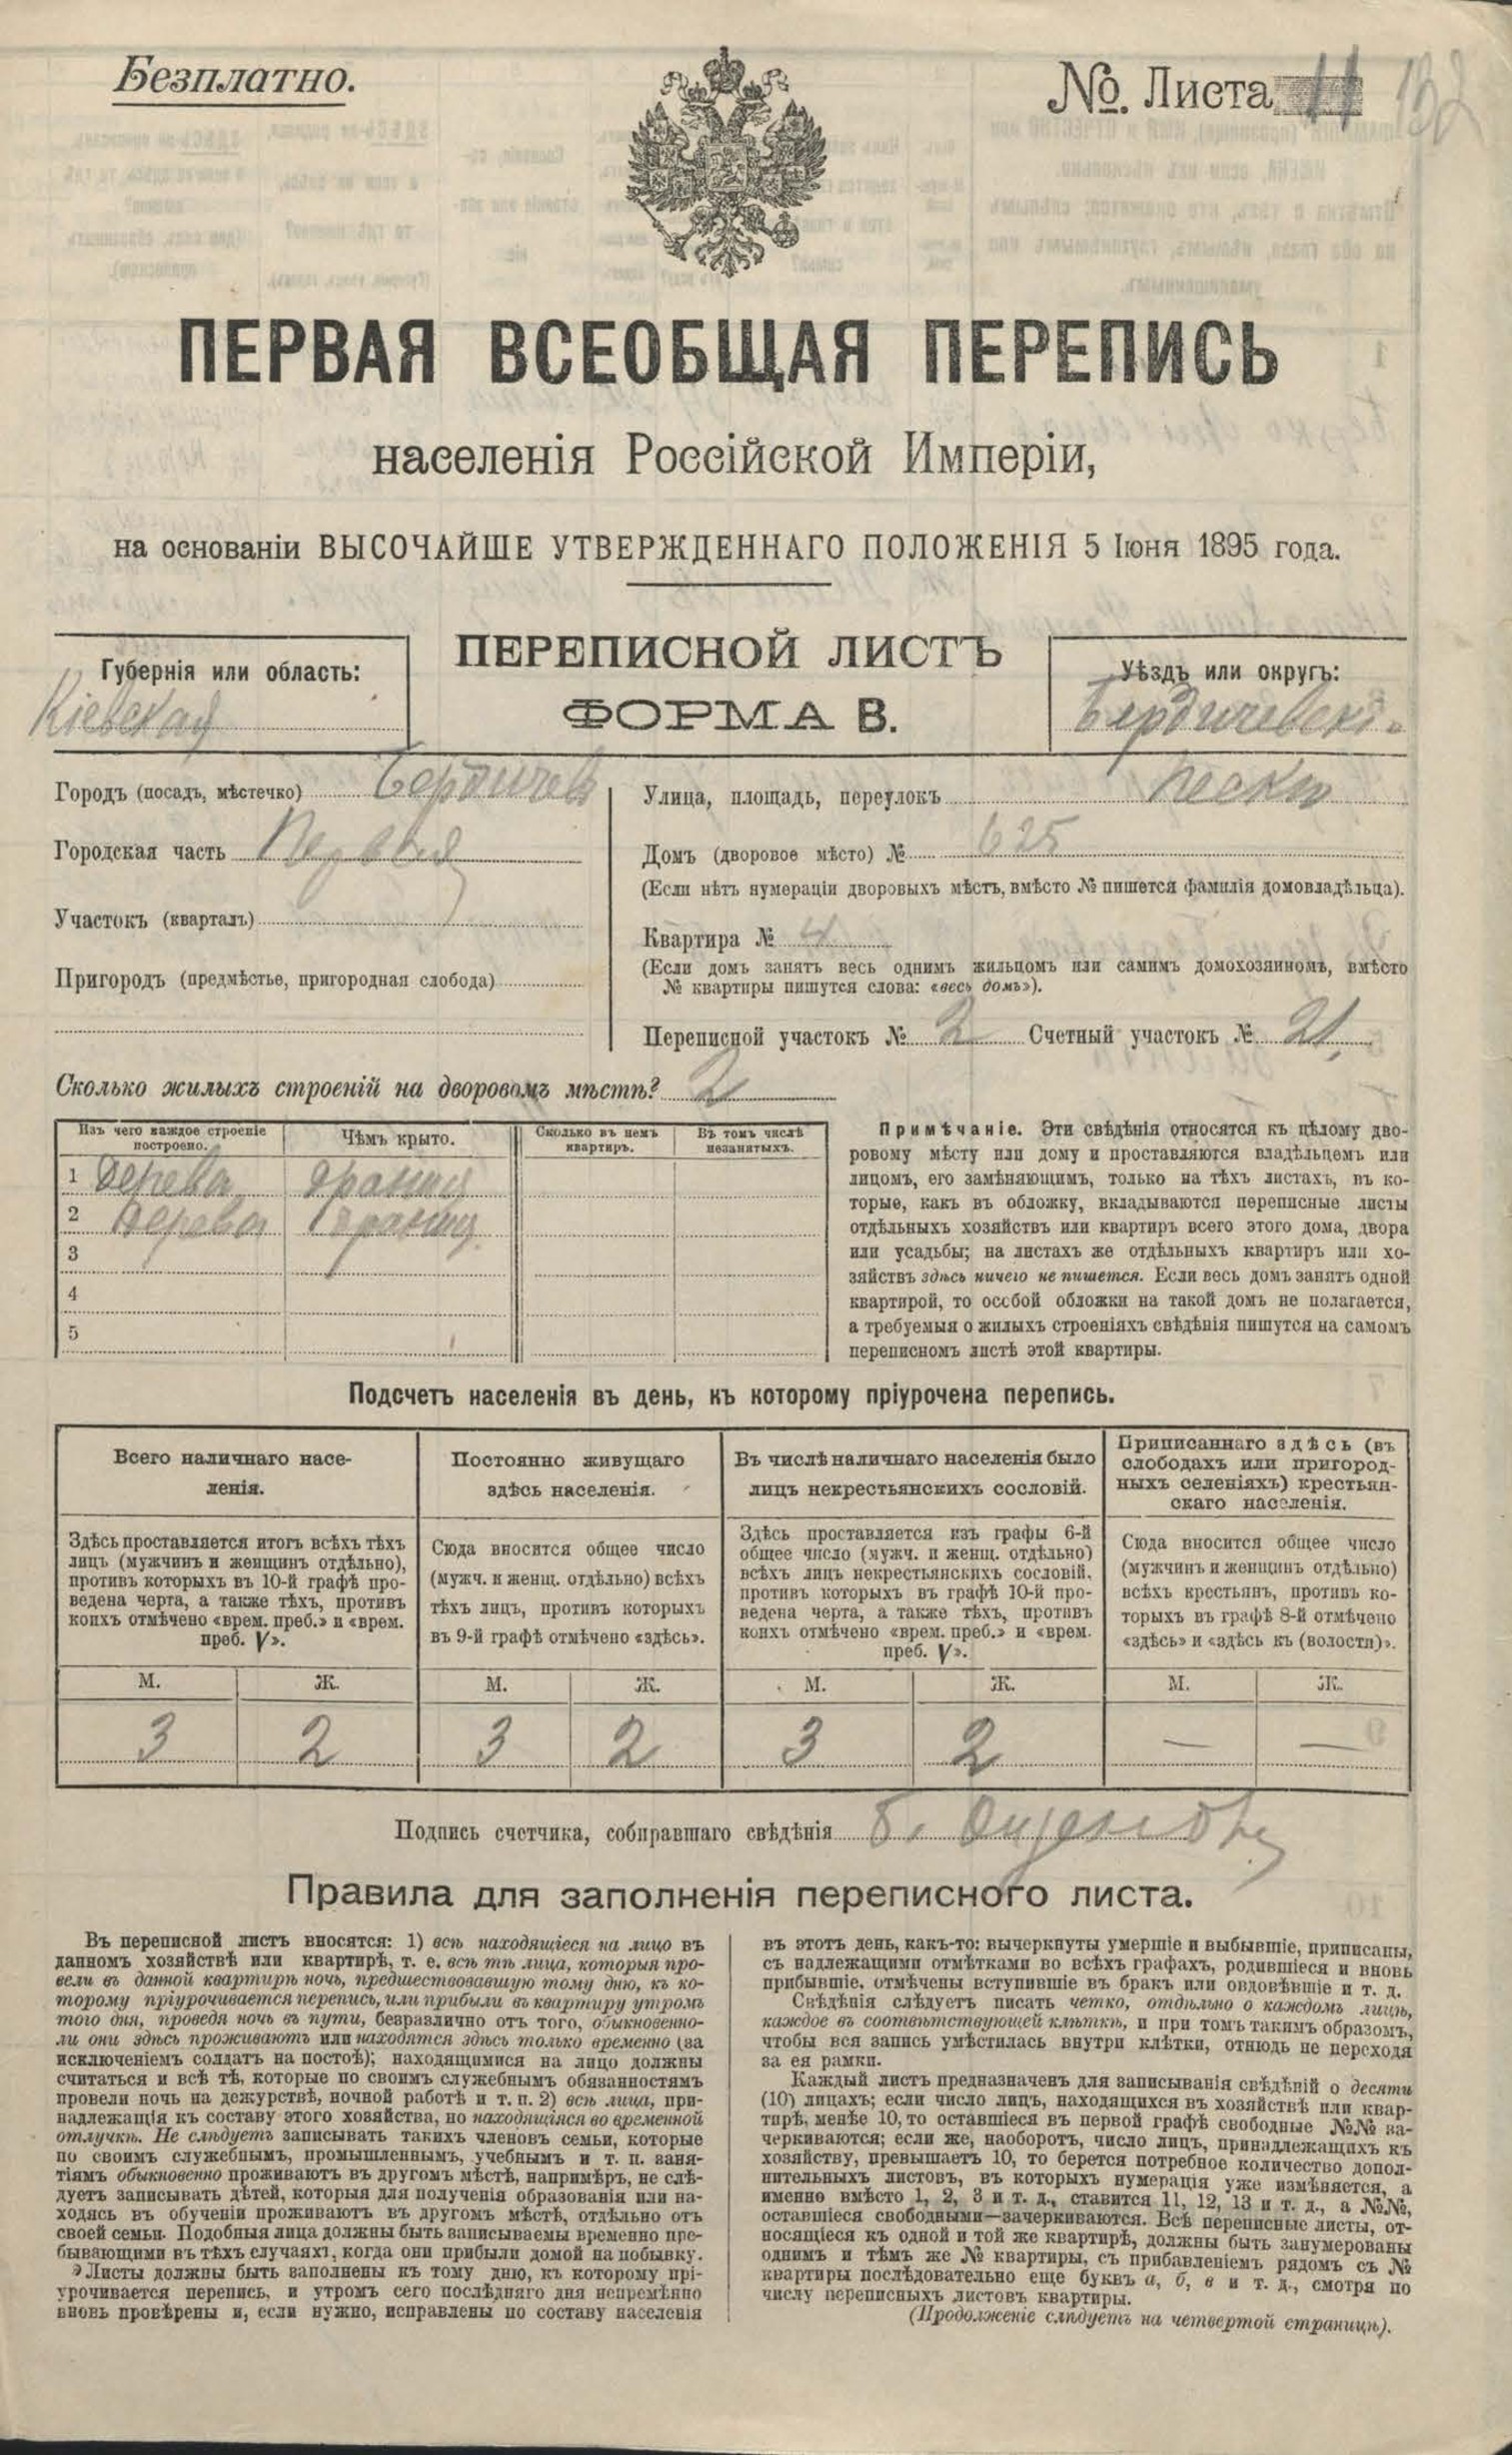 Безплатно.
№. Листа 11 132
ПЕРВАЯ ВСЕОБЩАЯ ПЕРЕПИСЬ
населенія Россійской Имперіи,
на основаніи ВЫСОЧАЙШЕ УТВЕРЖДЕННАГО ПОЛОЖЕНІЯ 5 Іюня 1895 года.
ПЕРЕПИСНОЙ ЛИСТЪ
ФОРМА В.
Губернія или область:
Кіевская
Уѣздъ или округъ:
Бердичевскі
Городъ (посадъ, мѣстечко) Бердичев
Городская часть Первая
Участокъ (кварталъ)
Пригородъ (предмѣстье, пригородная слобода)
Улица, площадь, переулокъ Пески
Домъ (дворовое мѣсто) № 625
(Если нѣтъ нумераціи дворовыхъ мѣстъ, вмѣсто № пишется фамилія домовладѣльца).
Квартира № 4
(Если домъ занятъ весь однимъ жильцомъ или самимъ домохозяиномъ, вмѣсто
№ квартиры пишутся слова: «весь домъ»).
Переписной участокъ № 2 Счетный участокъ № 21
Сколько жилыхъ строеній на дворовомъ мѣстѣ? 2
Изъ чего каждое строеніе построено. Чѣмъ крыто. Сколько въ немъ квартиръ. Въ томъ числѣ незанятыхъ.
1 Дерева
2 Дерева
3
4
5
Примѣчаніе. Эти свѣдѣнія относятся къ цѣлому дво-
ровому мѣсту или дому и проставляются владѣльцемъ или
лицомъ, его замѣняющимъ, только на тѣхъ листахъ, въ ко-
торые, какъ въ обложку, вкладываются переписные листы
отдѣльныхъ хозяйствъ или квартиръ всего этого дома, двора
или усадьбы; на листахъ же отдѣльныхъ квартиръ или хо-
зяйствъ здѣсь ничего не пишется. Если весь домъ занятъ одной
квартирой, то особой обложки на такой домъ не полагается,
а требуемыя о жилыхъ строеніяхъ свѣдѣнія пишутся на самомъ
переписномъ листѣ этой квартиры.
Подсчетъ населенія въ день, къ которому пріурочена перепись.
Всего наличнаго насе-
ленія.
Здѣсь проставляется итогъ всѣхъ тѣхъ
лицъ (мужчинъ и женщинъ отдѣльно),
противъ которыхъ въ 10-й графѣ про-
ведена черта, а также тѣхъ, противъ
коихъ отмѣчено «врем. преб.» и «врем.
преб. V».
М. Ж.
3 2
Постоянно живущаго
здѣсь населенія.
Сюда вносится общее число
(мужч. и женщ. отдѣльно) всѣхъ
тѣхъ лицъ, противъ которыхъ
въ 9-й графѣ отмѣчено «здѣсь».
М. Ж.
3 2
Въ числѣ наличнаго населенія было
лицъ некрестьянскихъ сословій.
Здѣсь проставляется изъ графы 6-й
общее число (мужч. и женщ. отдѣльно)
всѣхъ лицъ некрестьянскихъ сословій,
противъ которыхъ въ графѣ 10-й про-
ведена черта, а также тѣхъ, противъ
коихъ отмѣчено «врем. преб.» и «врем.
преб. V».
М. Ж.
3 2
Приписаннаго здѣсь (въ
слободахъ или пригород-
ныхъ селеніяхъ) крестьян-
скаго населенія.
Сюда вносится общее число
(мужчинъ и женщинъ отдѣльно)
всѣхъ крестьянъ, противъ ко-
торыхъ въ графѣ 8-й отмѣчено
«здѣсь» и «здѣсь къ (волости)».
М. Ж.
— —
Подпись счетчика, собиравшаго свѣдѣнія
Правила для заполненія переписного листа.
Въ переписной листъ вносятся: 1) всѣ находящіеся на лицо въ
данномъ хозяйствѣ или квартирѣ, т. е. всѣ тѣ лица, которыя про-
вели въ данной квартирѣ ночь, предшествовавшую тому дню, къ ко-
торому пріурочивается перепись, или прибыли въ квартиру утромъ
того дня, проведя ночь въ пути, безразлично отъ того, обыкновенно-
ли они здѣсь проживаютъ или находятся здѣсь только временно (за
исключеніемъ солдатъ на постоѣ); находящимися на лицо должны
считаться и всѣ тѣ, которые по своимъ служебнымъ обязанностямъ
провели ночь на дежурствѣ, ночной работѣ и т. п. 2) всѣ лица, при-
надлежащія къ составу этого хозяйства, но находящіяся во временной
отлучкѣ. Не слѣдуетъ записывать такихъ членовъ семьи, которые
по своимъ служебнымъ, промышленнымъ, учебнымъ и т. п. заня-
тіямъ обыкновенно проживаютъ въ другомъ мѣстѣ, напримѣръ, не слѣ-
дуетъ записывать дѣтей, которыя для полученія образованія или на-
ходясь въ обученіи проживаютъ въ другомъ мѣстѣ, отдѣльно отъ
своей семьи. Подобныя лица должны быть записываемы временно пре-
бывающими въ тѣхъ случаяхъ, когда они прибыли домой на побывку.
Листы должны быть заполнены къ тому дню, къ которому прі-
урочивается перепись, и утромъ сего послѣдняго дня непремѣнно
вновь провѣрены и, если нужно, исправлены по составу населенія
въ этотъ день, какъ-то: вычеркнуты умершіе и выбывшіе, приписаны,
съ надлежащими отмѣтками во всѣхъ графахъ, родившіеся и вновь
прибывшіе, отмѣчены вступившіе въ бракъ или овдовѣвшіе и т. д.
Свѣдѣнія слѣдуетъ писать четко, отдѣльно о каждомъ лицѣ,
каждое въ соотвѣтствующей клѣткѣ, и при томъ такимъ образомъ,
чтобы вся запись умѣстилась внутри клѣтки, отнюдь не переходя
за ея рамки.
Каждый листъ предназначенъ для записыванія свѣдѣній о десяти
(10) лицахъ; если число лицъ, находящихся въ хозяйствѣ или квар-
тирѣ, менѣе 10, то оставшіеся въ первой графѣ свободные №№ за-
черкиваются; если же, наоборотъ, число лицъ, принадлежащихъ къ
хозяйству, превышаетъ 10, то берется потребное количество допол-
нительныхъ листовъ, въ которыхъ нумерація уже измѣняется, а
именно вмѣсто 1, 2, 3 и т. д., ставится 11, 12, 13 и т. д., а №№,
оставшіеся свободными—зачеркиваются. Всѣ переписные листы, от-
носящіеся къ одной и той же квартирѣ, должны быть занумерованы
однимъ и тѣмъ же № квартиры, съ прибавленіемъ рядомъ съ №
квартиры послѣдовательно еще буквъ а, б, в и т. д., смотря по
числу переписныхъ листовъ квартиры.
(Продолженіе слѣдуетъ на четвертой страницѣ).